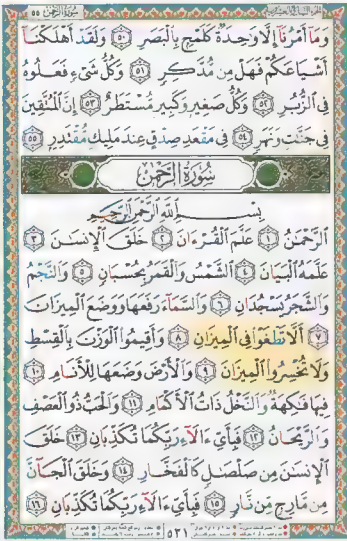 سورة الرحمن ٥٥
وَمَآ أَمْرُنَآ إِلَّا وَٰحِدَةٌ كَلَمْحٍۭ بِٱلْبَصَرِ ٥٠ وَلَقَدْ أَهْلَكْنَآ
أَشْيَاعَكُمْ فَهَلْ مِن مُّدَّكِرٍ ٥١ وَكُلُّ شَىْءٍ فَعَلُوهُ
فِى ٱلزُّبُرِ ٥٢ وَكُلُّ صَغِيرٍ وَكَبِيرٍ مُّسْتَطَرٌ ٥٣ إِنَّ ٱلْمُتَّقِينَ
فِى جَنَّٰتٍ وَنَهَرٍ ٥٤ فِى مَقْعَدِ صِدْقٍ عِندَ مَلِيكٍ مُّقْتَدِرٍۭ ٥٥
سُورَةُ الرَّحْمَٰن
بِسْمِ ٱللَّهِ ٱلرَّحْمَٰنِ ٱلرَّحِيمِ
ٱلرَّحْمَٰنُ ١ عَلَّمَ ٱلْقُرْءَانَ ٢ خَلَقَ ٱلْإِنسَٰنَ ٣
عَلَّمَهُ ٱلْبَيَانَ ٤ ٱلشَّمْسُ وَٱلْقَمَرُ بِحُسْبَانٍ ٥ وَٱلنَّجْمُ
وَٱلشَّجَرُ يَسْجُدَانِ ٦ وَٱلسَّمَآءَ رَفَعَهَا وَوَضَعَ ٱلْمِيزَانَ
٧ أَلَّا تَطْغَوْا۟ فِى ٱلْمِيزَانِ ٨ وَأَقِيمُوا۟ ٱلْوَزْنَ بِٱلْقِسْطِ
وَلَا تُخْسِرُوا۟ ٱلْمِيزَانَ ٩ وَٱلْأَرْضَ وَضَعَهَا لِلْأَنَامِ ١٠
فِيهَا فَٰكِهَةٌ وَٱلنَّخْلُ ذَاتُ ٱلْأَكْمَامِ ١١ وَٱلْحَبُّ ذُو ٱلْعَصْفِ
وَٱلرَّيْحَانُ ١٢ فَبِأَىِّ ءَالَآءِ رَبِّكُمَا تُكَذِّبَانِ ١٣ خَلَقَ
ٱلْإِنسَٰنَ مِن صَلْصَٰلٍ كَٱلْفَخَّارِ ١٤ وَخَلَقَ ٱلْجَآنَّ
مِن مَّارِجٍ مِّن نَّارٍ ١٥ فَبِأَىِّ ءَالَآءِ رَبِّكُمَا تُكَذِّبَانِ ١٦
٥٣١